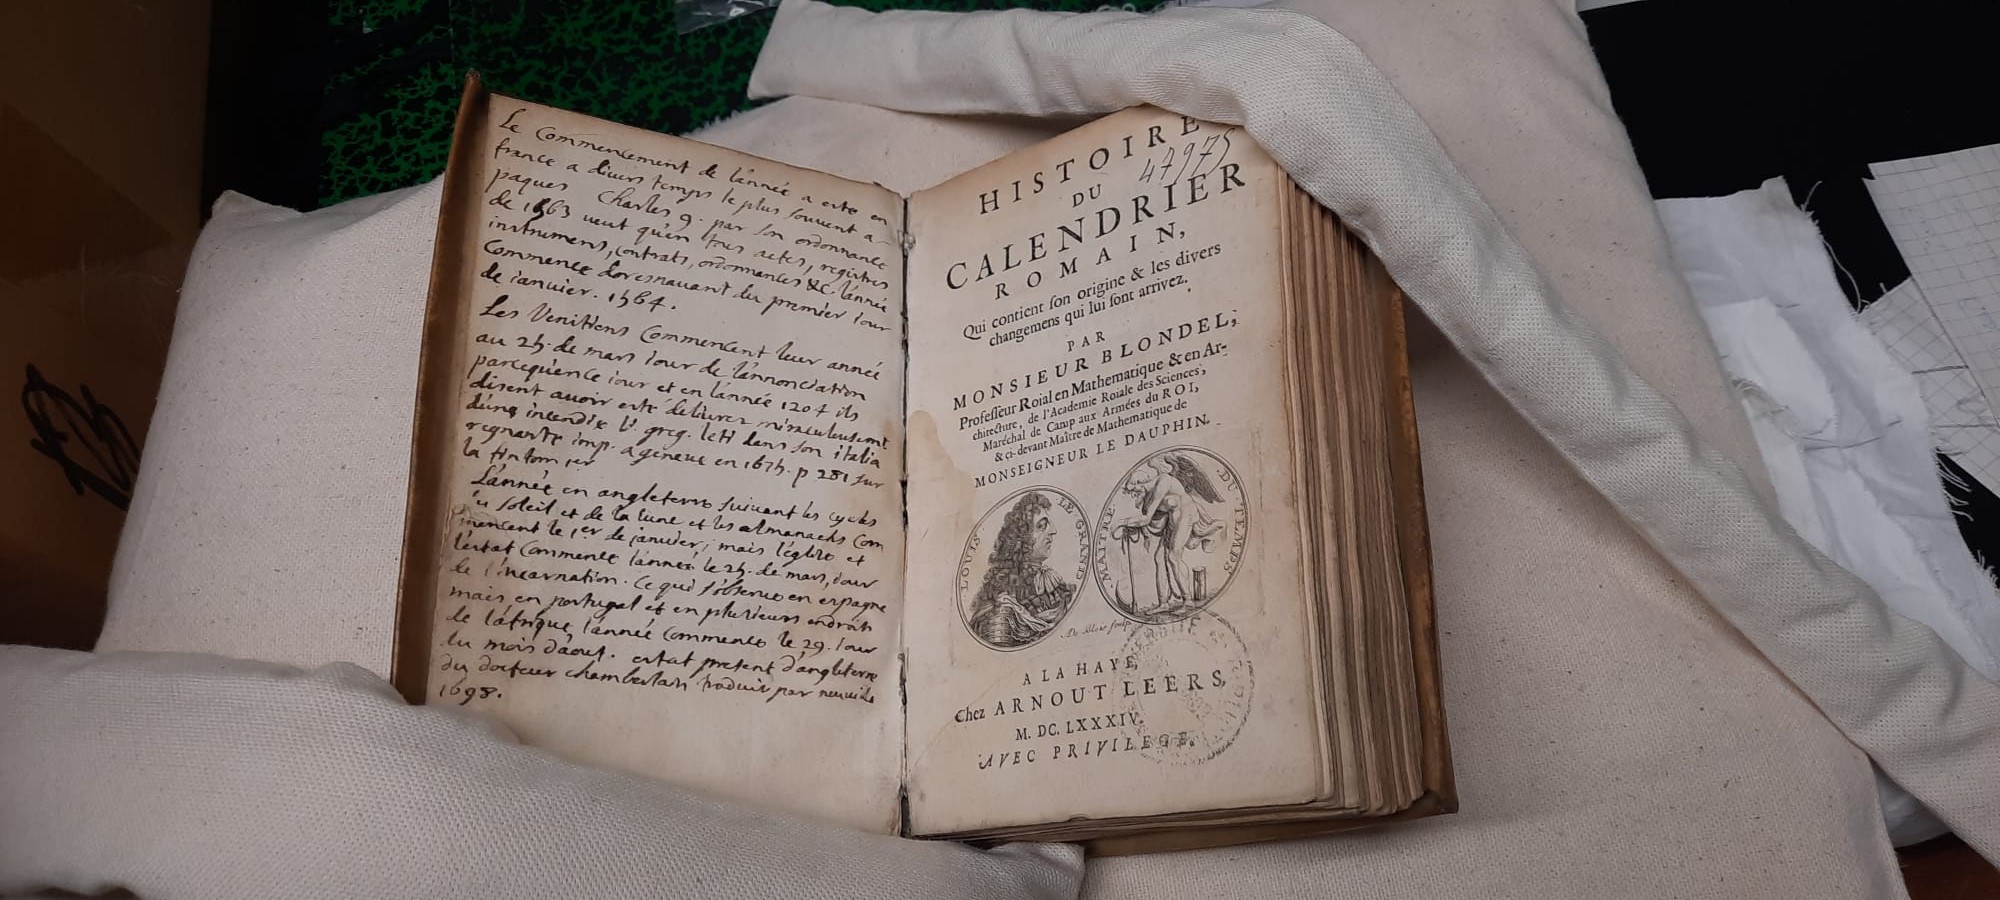 Le Commencement de lannée a esté en
france a divers temps le plus souvent a
paques Charles 9. par son ordonnance
de 1563 veut qu'en tous actes, registres
instrumens, contrats, ordonnances &c. lannée
Commence doresnauant du premier iour
de ianuier. 1564.
Les Venitiens Commencent leur année
au 25. de mars iour de lannonciation
parcequence iour et en lannée 1204 ils
disent auoir esté délivrez miraculeusement
dune incendie V. greg. leti dans son italia
regnante imp. a geneue en 1675. p 281 sur
la fin tom 1er
Lannée en angleterre suiuant les cycles
du soleil et de la lune et les almanachs com
mencent le 1er de januier; mais léglise et
léstat Commence lannée le 25. de mars, iour
de l'incarnation. Ce qui s'observe en espagne
mais en portugal et en plusieurs endroits
de lafrique lannée Commence le 29. iour
du mois daout. estat present dangleterre
du docteur chamberlan traduit par
1698.
HISTOIRE
47975
DU
CALENDRIER
ROMAIN,
Qui contient ſon origine & les divers
changemens qui lui ſont arrivez.
PAR
MONSIEUR BLONDEL,
Profeſſeur Roial en Mathematique & en Ar-
chitecture, de l'Academie Roiale des Sciences,
Maréchal de Camp aux Armées du ROI,
& ci-devant Maître de Mathematique de
MONSEIGNEUR LE DAUPHIN.
LOUIS LE GRAND
MAITRE DU TEMPS
A LA HAYE,
Chez ARNOUT LEERS,
M. DC. LXXXIV.
AVEC PRIVILEGE.